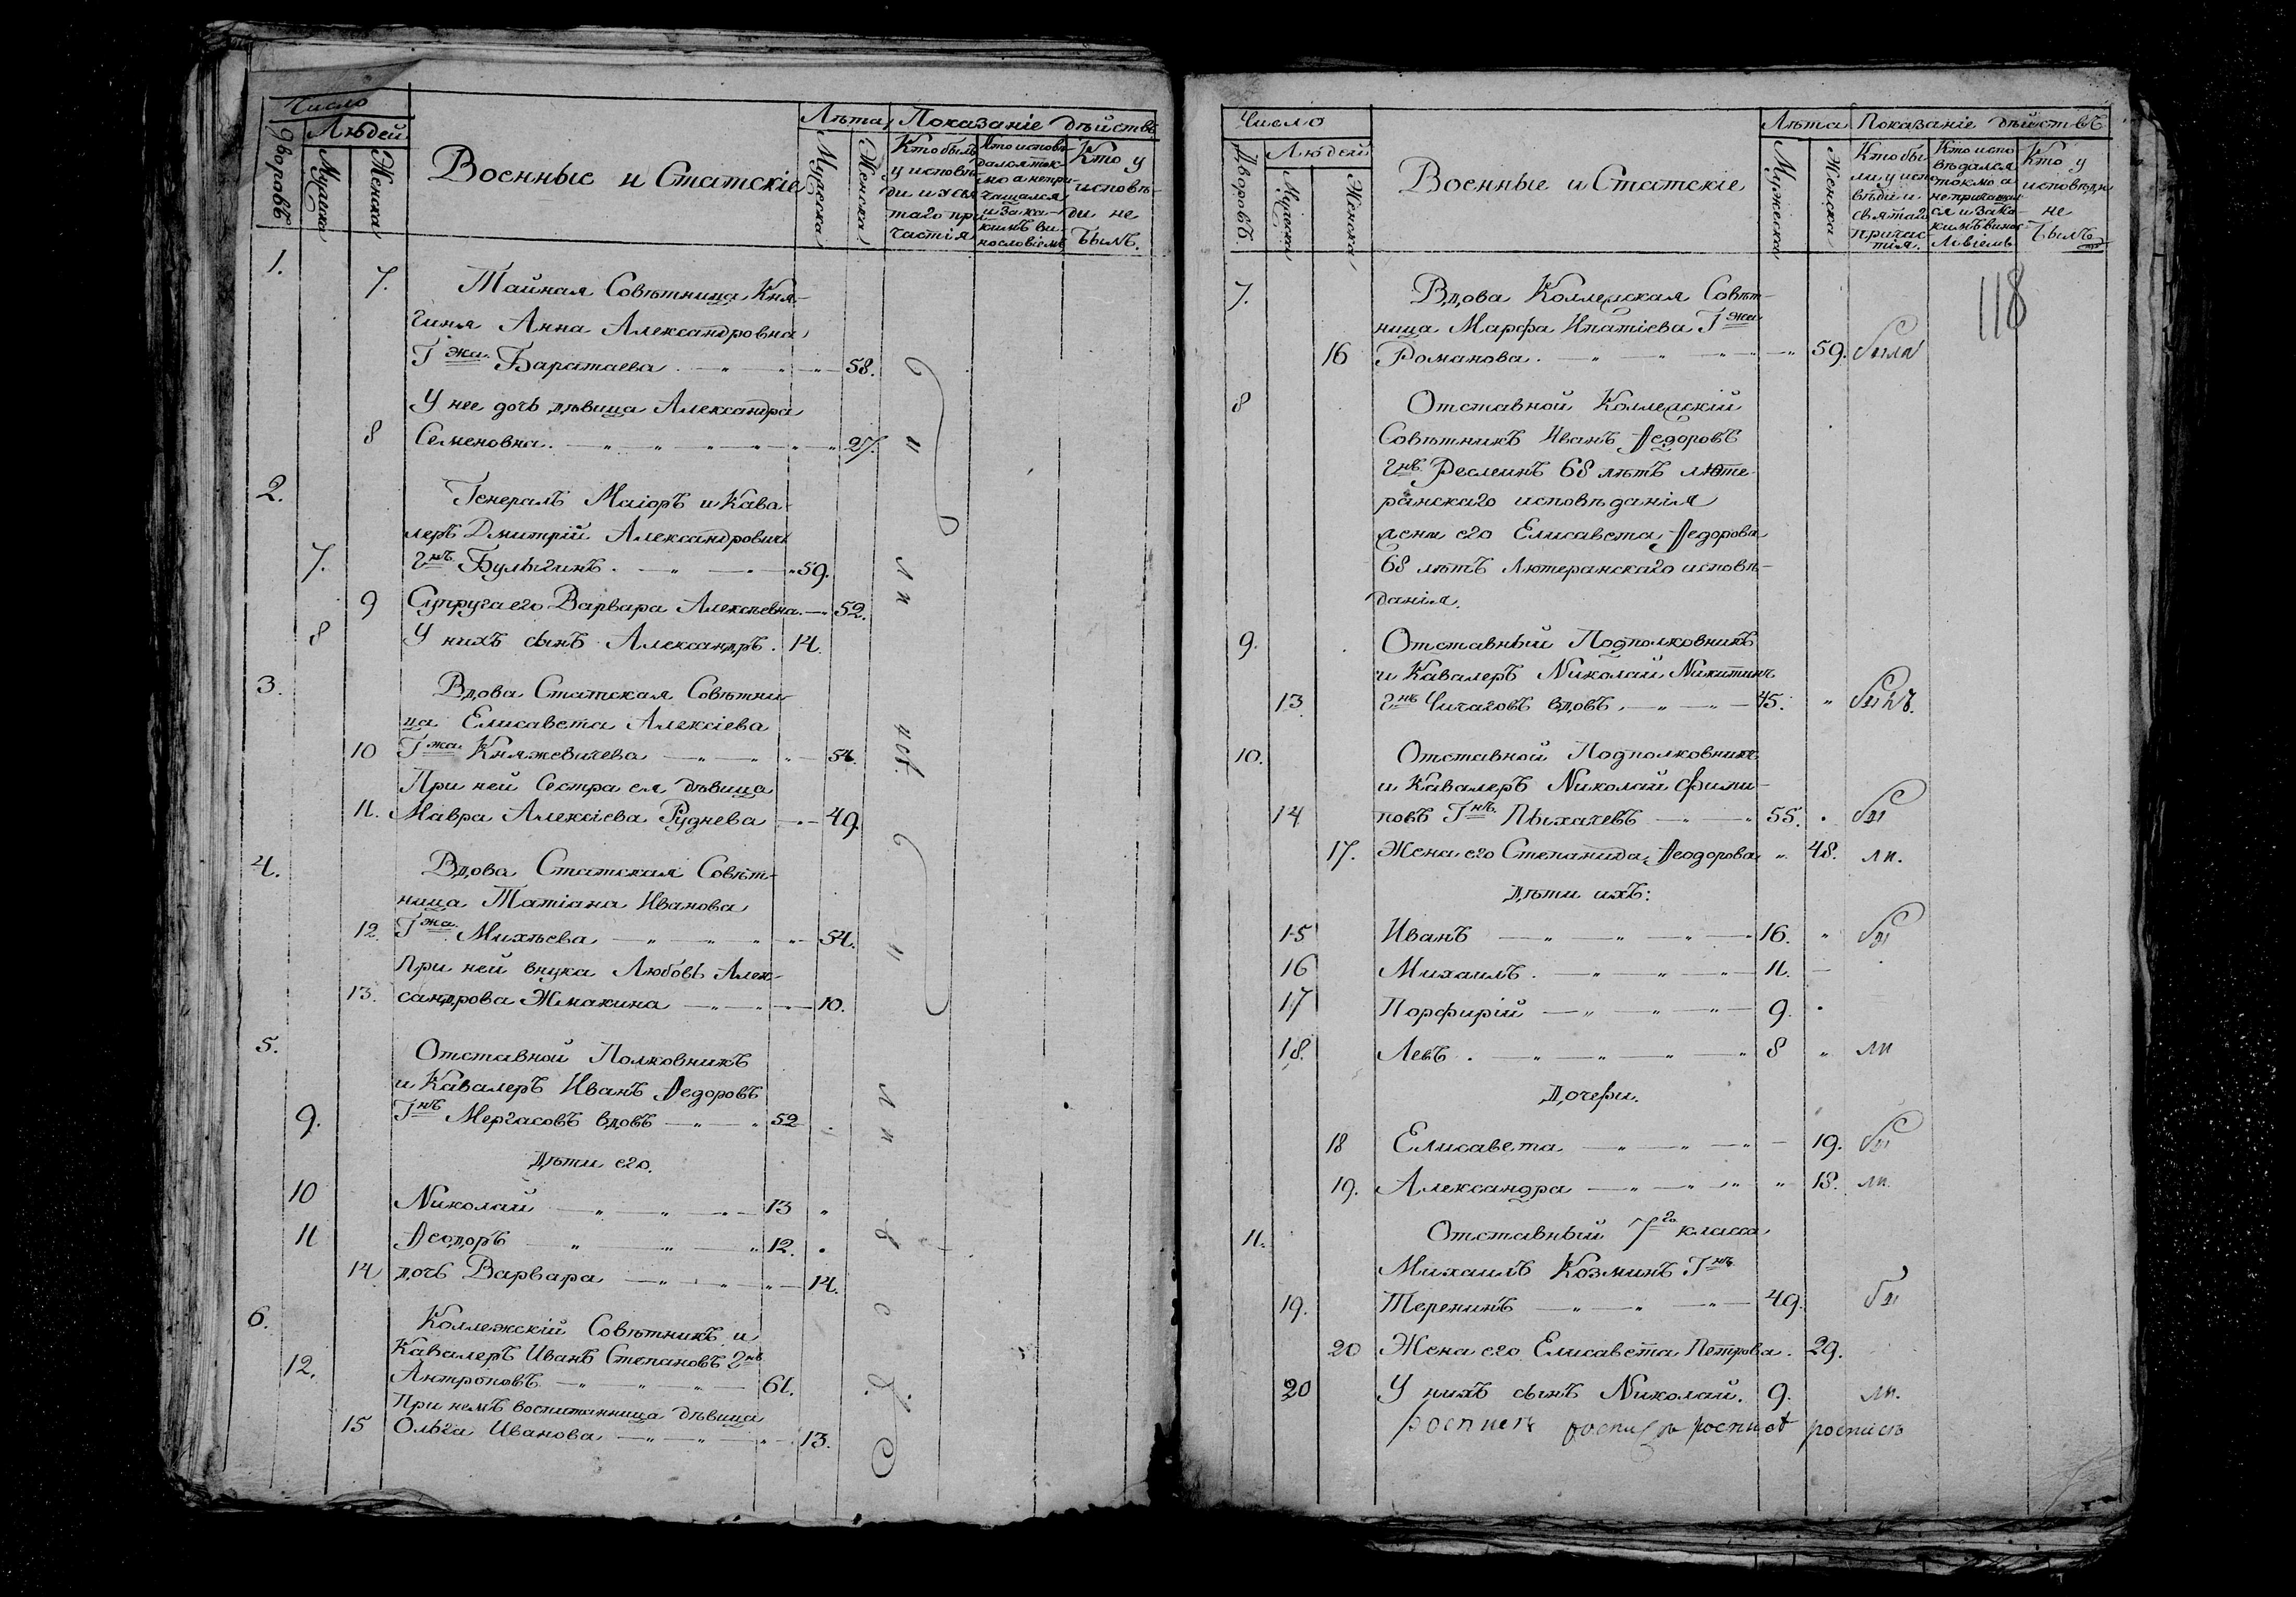 Число
Дворовъ
Людей
Мужеска
Женска
Военные и Статскіе
Лѣта
Мужеска
Женска
Показаніе дѣйствъ
Кто былъ
у исповѣ-
ди и свя-
таго при-
частія
Кто исповѣ-
дался ток-
мо а непри-
чащался
и за ка-
кимъ ви-
нословіемъ
Кто у
исповѣ-
ди не
былъ.
1.
7. Тайная Совѣтница Кня-
гиня Анна Александровна
Гжа. Баратаева 58.
У нее дочь дѣвица Александра
8 Семеновна. 27.
2. Генералъ Маіоръ и Кава-
леръ Дмитрій Александровичь
7. гнъ. Булыгинъ. 59.
9 Супруга его Варвара Алексѣевна. 52.
8 У нихъ сынъ Александръ. 14.
3. Вдова Статская Совѣтни-
ца Елисавета Алексіева
10 Гжа. Княжевичева 54.
При ней Сестра ея дѣвица
11. Мавра Алексіева Руднева 49.
4. Вдова Статская Совѣт-
ница Татіана Иванова
12. Гжа. Михѣева 54.
При ней внука Любовь Алек-
13. сандрова Жмакина 10.
5. Отставной Полковникъ
и Кавалеръ Иванъ Ѳедоровъ
9. Гнъ Мергасовъ вдовъ 52
Дѣти его.
10 Николай 13
11 Ѳеодоръ 12.
14 дочь Варвара 14.
6. Коллежскій Совѣтникъ и
Кавалеръ Иванъ Степановъ гнъ
12. Антроповъ 61.
При немъ воспитанница дѣвица
15 Ольга Иванова 13.
Число
Дворовъ.
Людей
Мужеска
Женска
Военные и Статскіе
Лѣта
Мужеска
Женска
Показаніе дѣйствъ
Кто бы-
ли у испо-
вѣди и
святаго
причас-
тія.
Кто испо
вѣдался
токмо а
не причащал
ся и за ка-
кимъ винос
ловіемъ
Кто у
исповѣди
не
былъ
118
7. Вдова Коллежская Совѣт-
ница Марфа Ипатіева Гжа
16 Романова. 59. была
8 Отставной Коллежскій
Совѣтникъ Иванъ Ѳедоровъ
гнъ. Реслеинъ 68 лѣтъ люте-
ранскаго исповѣданія
жена его Елисавета Ѳедорова
68 лѣтъ Лютеранскаго исповѣ-
данія.
9. Отставный Подполковникъ
и Кавалеръ Николай Никитинъ
13 гнъ Чичаговъ вдовъ 45. былъ.
10. Отставной Подполковникъ
и Кавалеръ Николай Фили-
14 повъ Гнъ. Пыхачевъ 55. бы
17. Жена его Степанида Ѳеодорова 48. ли.
Дѣти ихъ:
15 Иванъ 16. бы
16 Михаилъ. 11.
17 Порфирій 9.
18. Левъ. 8 ли
Дочери.
18 Елисавета 19. бы
19. Александра 18. ли.
11. Отставный 7го класса
Михаилъ Козминъ Гнъ.
19. Теренинъ 49. бы
20 Жена его Елисавета Петрова. 29.
20 У нихъ сынъ Николай. 9. ли.
роспись роспись роспись роспись